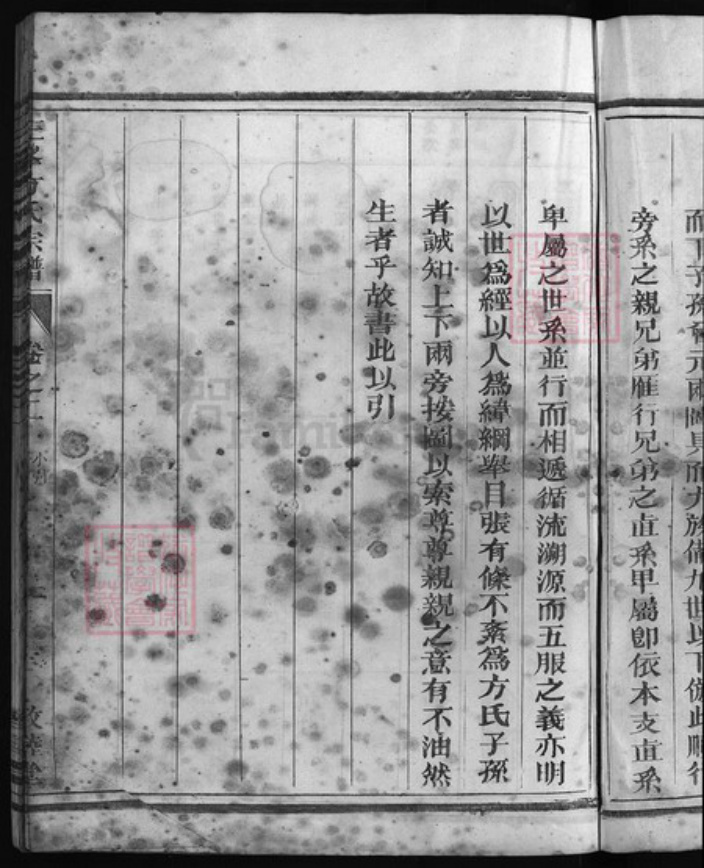 而下子孫曾元兩圖具而九族備九世以下倣此順行
旁系之親兄弟雁行兄弟之直系卑屬卽依本支直系
卑屬之世系並行而相遞循流溯源而五服之義亦明
以世爲經以人爲緯綱舉目張有條不紊爲方氏子孫
者誠知上下兩旁按圖以索尊尊親親之意有不油然
生者乎故書此以引
方氏宗譜
卷之二
小引